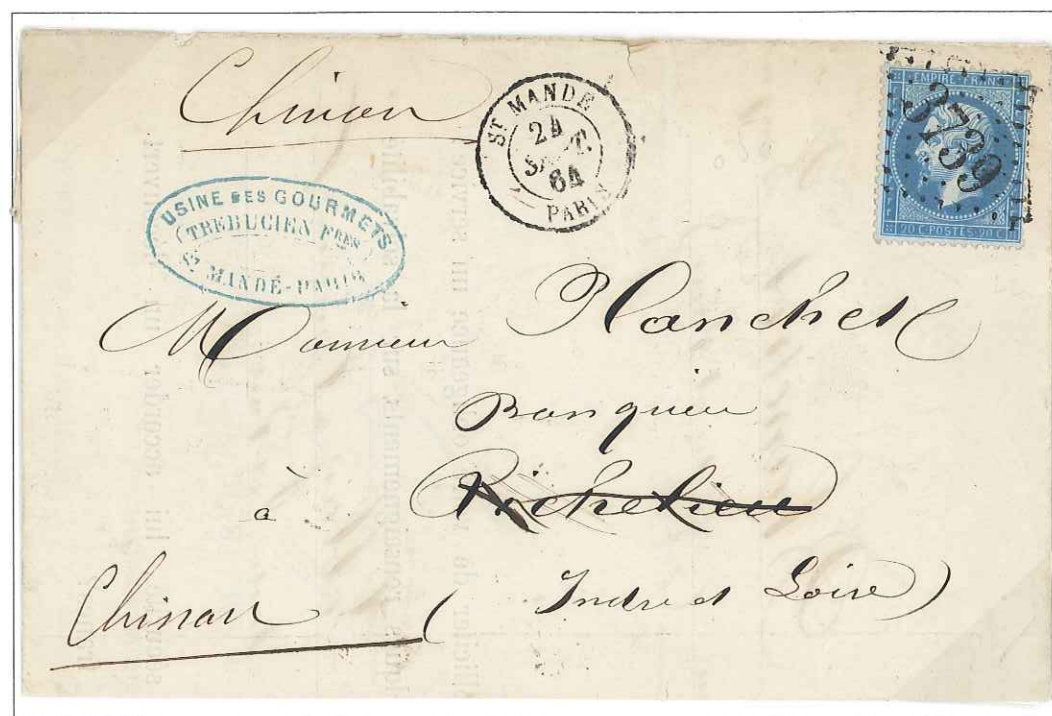 Chinon
ST MANDÉ
24
SEPT.
64
PARIS
EMPIRE FRANC
3739
20 C POSTES 20 C
USINE DES GOURMETS
TREBUCIEN FRES
ST MANDÉ-PARIS
Monsieur Planchet
Banquier
à Richelieu
Chinon (Indre et Loire)